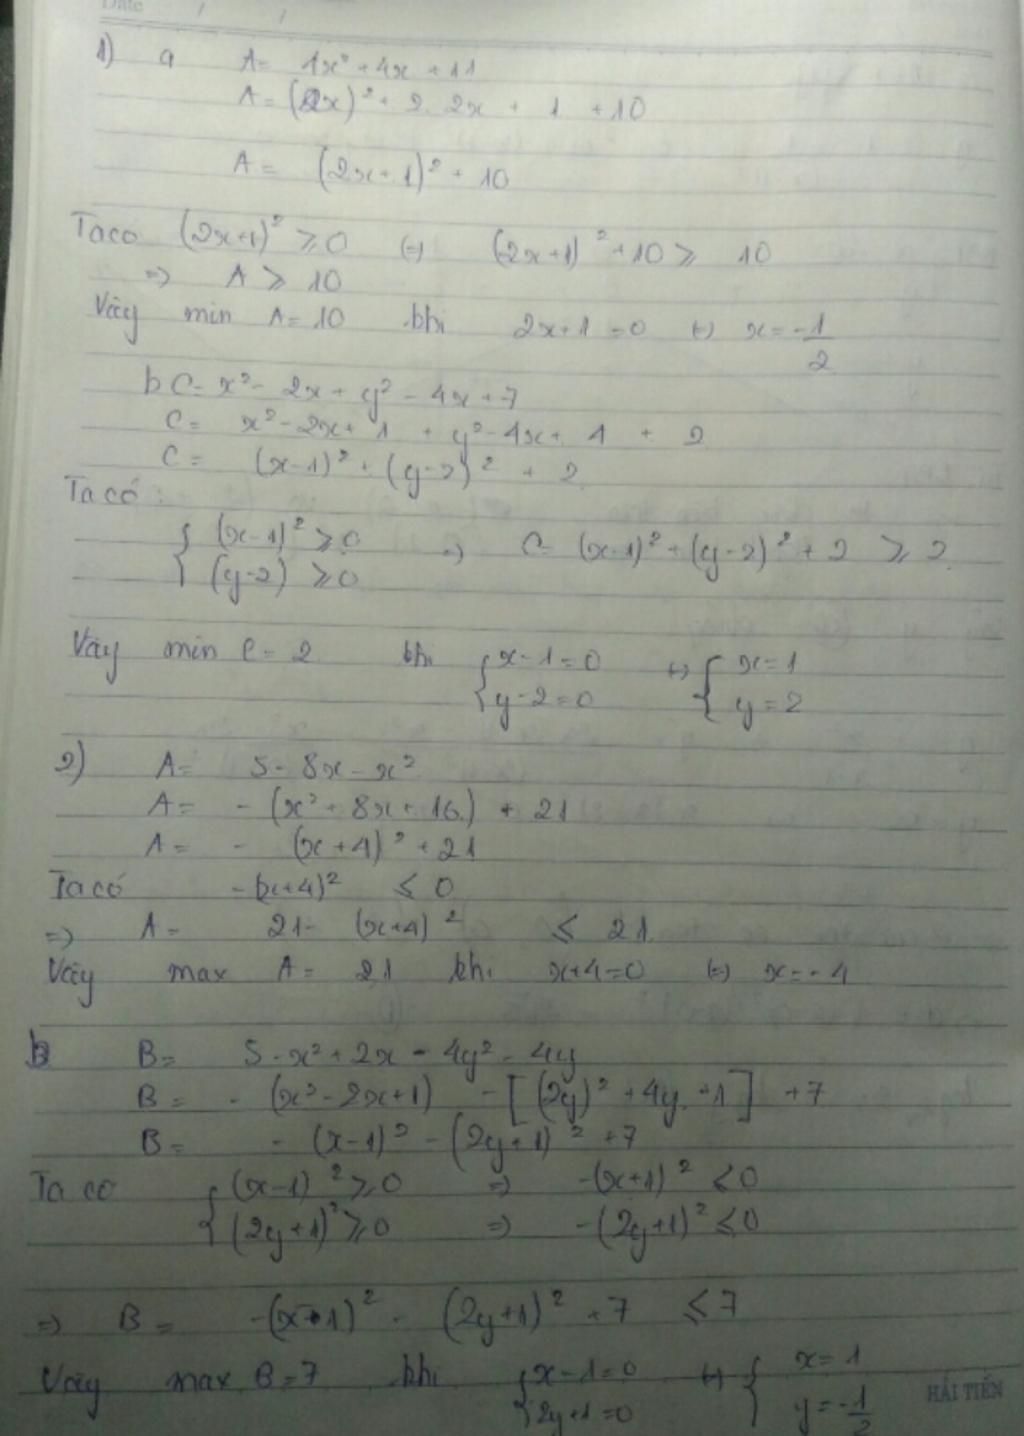 Date / /
1) a A = 4x² + 4x + 11
A = (2x)² + 2. 2x + 1 + 10
A = (2x+1)² + 10
Ta có (2x+1)² ≥ 0 (=) (2x+1)² + 10 ≥ 10
=> A ≥ 10
Vậy min A = 10 khi 2x+1 = 0 (=) x = -1/2
b C = x² - 2x + y² - 4x + 7
C = x² - 2x + 1 + y² - 4x + 4 + 2
C = (x-1)² + (y-2)² + 2
Ta có :
{ (x-1)² ≥ 0 => C = (x-1)² + (y-2)² + 2 ≥ 2
{ (y-2) ≥ 0
Vậy min C = 2 khi { x-1 = 0 (=) { x = 1
{ y-2 = 0 { y = 2
2) A = 5 - 8x - x²
A = - (x² + 8x + 16) + 21
A = - (x+4)² + 21
Ta có -(x+4)² ≤ 0
=> A = 21 - (x+4)² ≤ 21
Vậy max A = 21 khi x+4 = 0 (=) x = -4
b B = 5 - x² + 2x - 4y² - 4y
B = - (x² - 2x + 1) - [(2y)² + 4y + 1] + 7
B = - (x-1)² - (2y+1)² + 7
Ta có { (x-1)² ≥ 0 => -(x+1)² ≤ 0
{ (2y+1)² ≥ 0 => -(2y+1)² ≤ 0
=> B = -(x-1)² - (2y+1)² + 7 ≤ 7
Vậy max B = 7 khi { x-1 = 0 (=) { x = 1
{ 2y+1 = 0 { y = -1/2
HẢI TIẾN